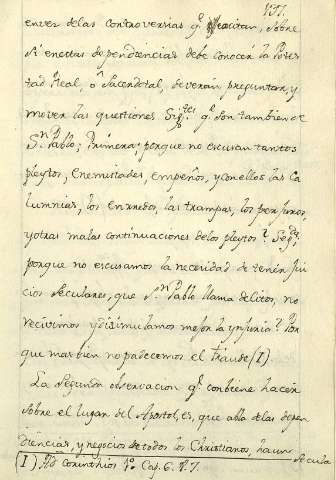 en vez de las controversias q.e excitan, sobre
si en estas dependencias debe conocer la Potes
tad Real, o Sacerdotal, deverán, preguntar, y
mover las questiones Sig.tes q.e son tambien de
S.n Pablo; Primera; porque no escusan tantos
pleytos, Enemistades, empeños, y con ellos las Ca
lumnias, los Enredos, las trampas, los perjuros,
y otras malas continuaciones de los pleytos? Seg.da;
porque no escusamos la necesidad de tenér Jui
cios Seculares, que S.n Pablo llama delitos, no
recivimos y disimulamos mejor la ynjuria? Por
que mas bien no padecemos el fraude (I).
La Segunda observacion q.e conbiene hacér
sobre el lugar del Apostol, es, que abla de las depen
diencias, y negocios de todos los Christianos, hacien
(I) Ad Corinthios 1.a Cap. 6. V. 7.